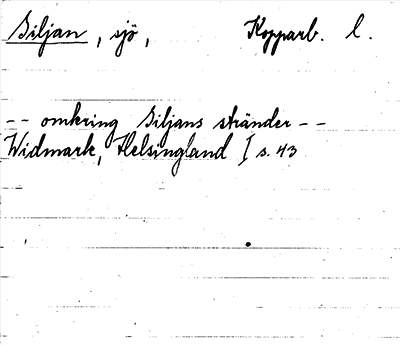 Siljan, sjö, Kopparb. l.
-- omkring Siljans stränder --
Widmark, Helsingland I s. 43